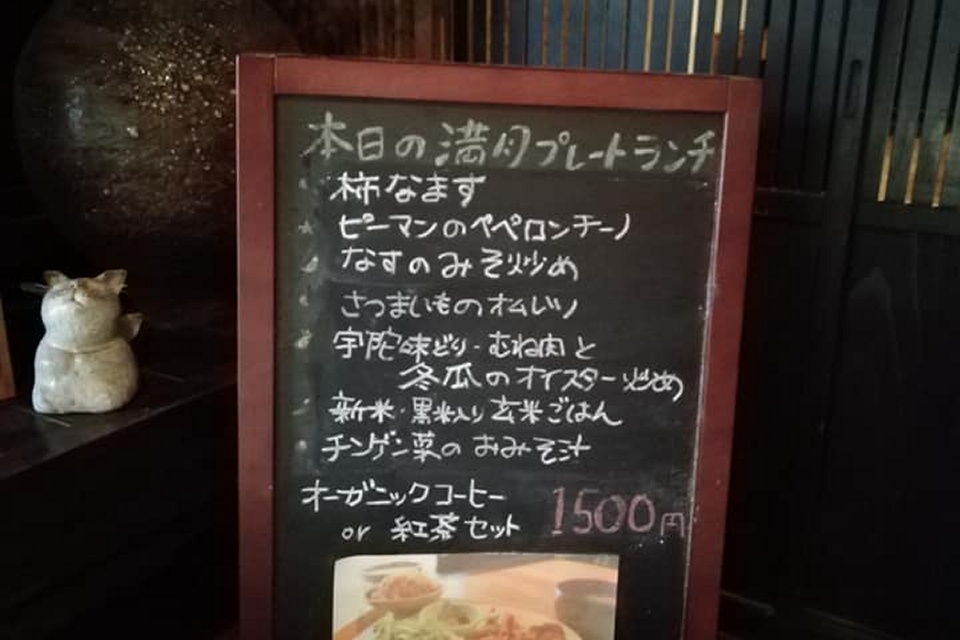 本日の満月プレートランチ
柿なます
ピーマンのペペロンチーノ
なすのみそ炒め
さつまいものオムレツ
宇陀味どり・むね肉と
冬瓜のオイスター炒め
新米・黒米入り玄米ごはん
チンゲン菜のおみそ汁
オーガニックコーヒー
or 紅茶セット 1500円